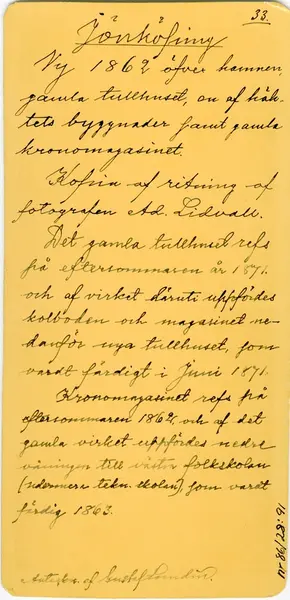 33.
Jönköping
Vy 1862 öfver hamnen,
gamla tullhuset, en af häk-
tets byggnader samt gamla
kronomagasinet.
Kopia af ritning af
fotografen Ad. Lidvall.
Det gamla tullhuset refs
på eftersommaren år 1871.
och af virket däruti uppfördes
kolboden och magasinet ne-
danför nya tullhuset, som
vardt färdigt i Juni 1871.
Kronomagasinet refs på
eftersommaren 1862, och af det
gamla virket uppfördes nedre
våningen till västra folkskolan
(numera tekn. skolan), som vardt
färdig 1863.
af Gustaf Lundin.